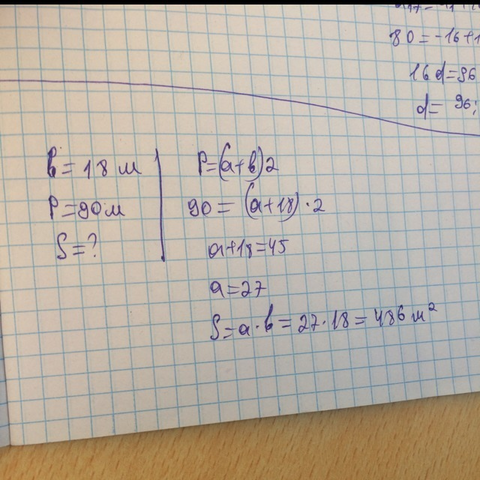 80 = -16+1
16d=96
d= 96:
b = 18 м
P = 90 м
S = ?
P=(a+b)2
90 = (a+18)·2
a+18=45
a=27
S=a·b = 27·18 = 486 м²